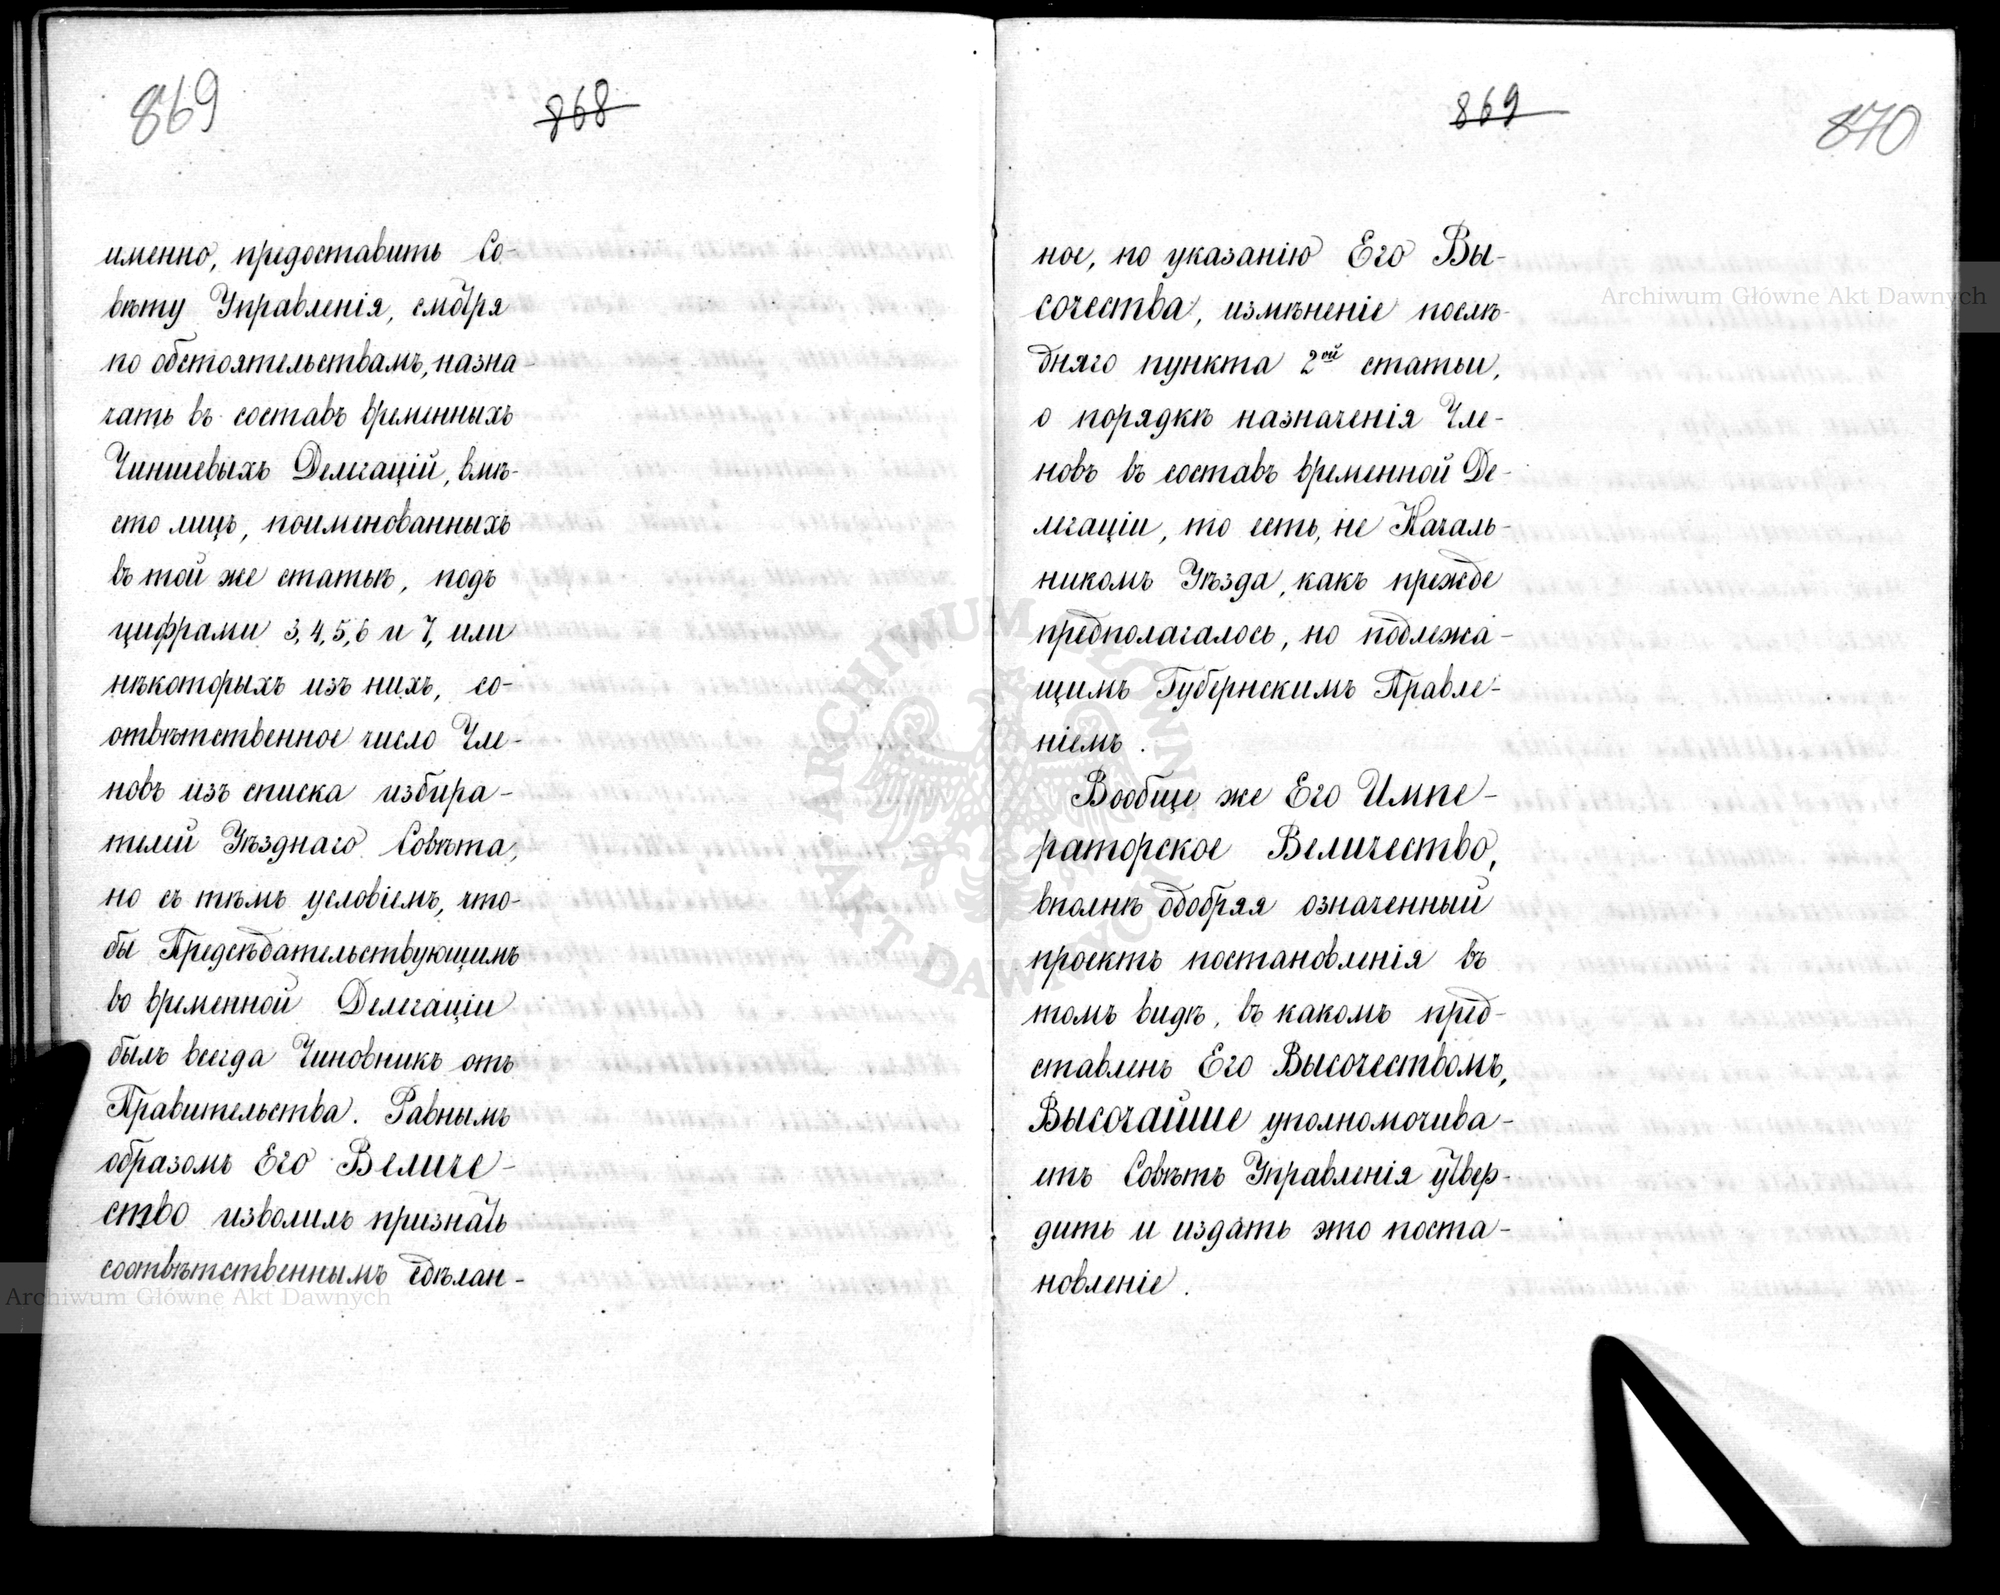 869
868
именно, предоставить Со-
вѣту Управленія, смотря
по обстоятельствамъ, назна-
чать въ составъ временныхъ
Чиншевыхъ Делегацій, вмѣ-
сто лицъ, поименованныхъ
въ той же статьѣ, подъ
цифрами 3, 4, 5, 6 и 7, или
нѣкоторыхъ изъ нихъ, со-
отвѣтственное число Чле-
новъ изъ списка избира-
телей Уѣзднаго Совѣта,
но съ тѣмъ условіемъ, что-
бы Предсѣдательствующимъ
во временной Делегаціи
былъ всегда Чиновникъ отъ
Правительства. Равнымъ
образомъ Его Величе-
ство изволилъ признать
соотвѣтственнымъ сдѣлан-
869
870
ное, по указанію Его Вы-
сочества, измѣненіе послѣ-
дняго пункта 2ой статьи,
о порядкѣ назначенія Чле-
новъ въ составъ временной Де-
легаціи, то есть, не Началь-
никомъ Уѣзда, какъ прежде
предполагалось, но подлежа-
щимъ Губернскимъ Правле-
ніемъ.
Вообще же Его Импе-
раторское Величество,
вполнѣ одобряя означенный
проектъ постановленія въ
томъ видѣ, въ какомъ пред-
ставленъ Его Высочествомъ,
Высочайше уполномочива-
етъ Совѣтъ Управленія утвер-
дить и издать это поста-
новленіе.
Archiwum Główne Akt Dawnych
ARCHIWUM GŁÓWNE
AKT DAWNYCH
Archiwum Główne Akt Dawnych